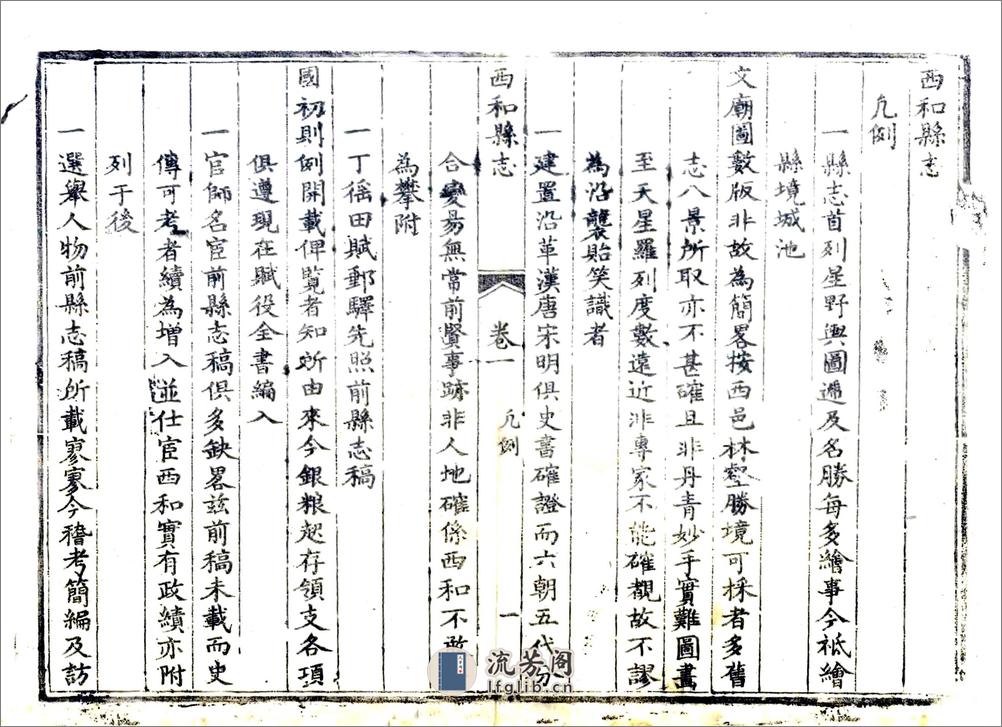 西和縣志
凡例
一縣志首列星野輿圖遞及名勝每多繪事今祇繪
縣境城池
文廟圖數版非故為簡畧按西邑林壑勝境可採者多舊
志八景所取亦不甚確且非丹青妙手實難圖畫
至天星羅列度數遠近非專家不能確覩故不謬
為沿襲貽笑識者
一建置沿革漢唐宋明俱史書確證而六朝五代分
西和縣志
卷一
凡例
一
合變易無常前賢事跡非人地確係西和不敢
為攀附
一丁徭田賦郵驛先照前縣志稿
國初則例開載俾覽者知所由來今銀粮起存領支各項
俱遵現在賦役全書編入
一官師名宦前縣志稿俱多缺畧茲前稿未載而史
傳可考者續為增入並仕宦西和實有政績亦附
列于後
一選舉人物前縣志稿所載寥寥今稽考簡編及訪
流芳阁
lfglib.cn